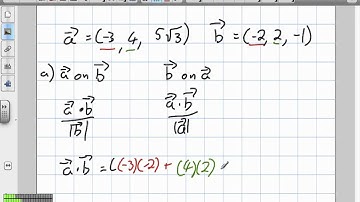 a⃗ = (-3, 4, 5√3) b⃗ = (-2, 2, -1)
a) a⃗ on b⃗ b⃗ on a⃗
a⃗ • b⃗ / |b⃗| a⃗ · b⃗ / |a⃗|
a⃗ · b⃗ = ((-3)(-2) + (4)(2)